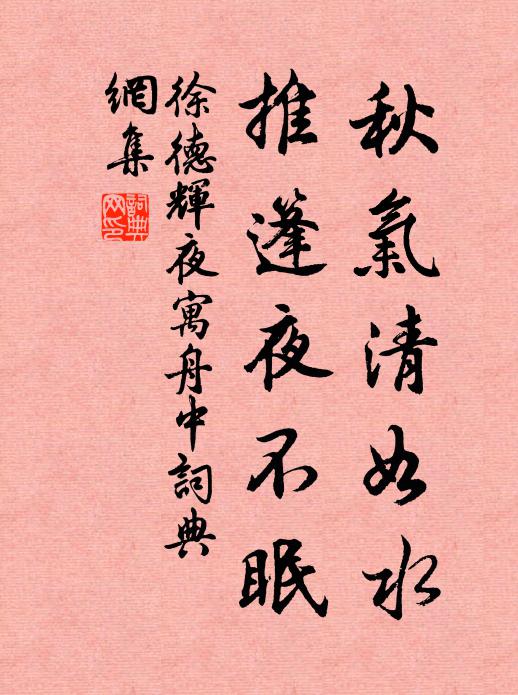 秋氣清如水
推篷夜不眠
徐德輝夜寓舟中詞典
網集
詞典网印